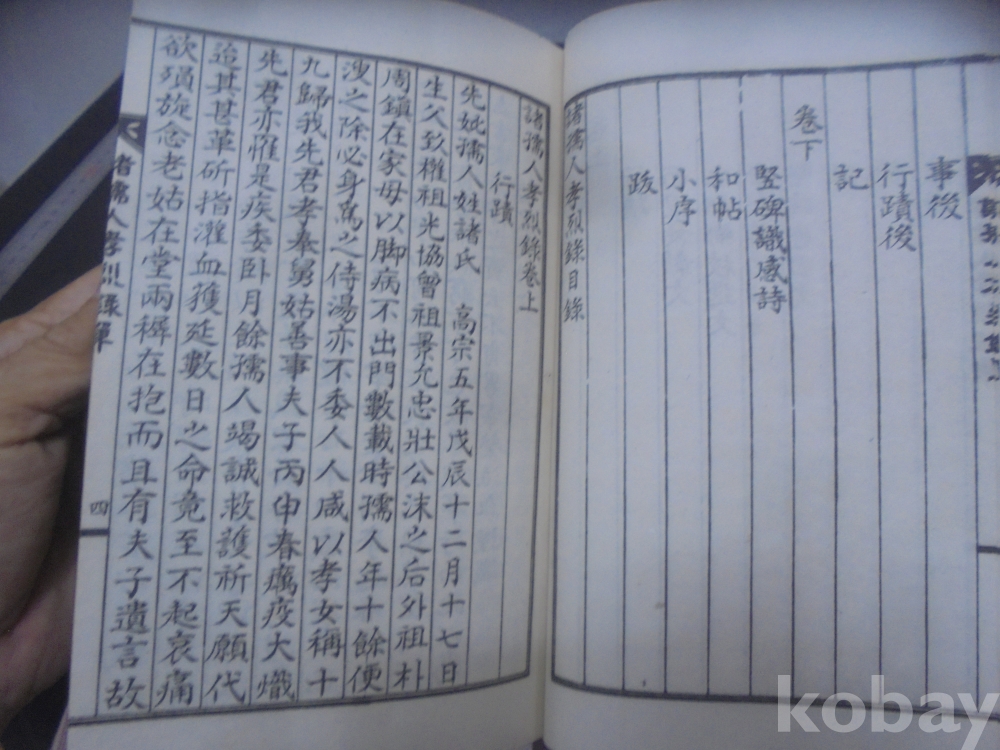 事後
行蹟後
記
卷下
豎碑議感詩
和帖
小序
跋
諸孺人孝烈錄目錄
諸孺人孝烈錄卷上
行蹟
先妣孺人姓諸氏 高宗五年戊辰十二月十七日
生父致權祖光協曾祖景允忠壯公沫之后外祖朴
周鎮在家母以脚病不出門數載時孺人年十餘便
溲之除必身爲之侍湯亦不委人人咸以孝女稱十
九歸我先君孝奉舅姑善事夫子丙申春癘疫大熾
先君亦罹是疾委卧月餘孺人竭誠救護祈天願代
迨其甚革斫指灌血獲延數日之命竟至不起哀痛
欲殞旋念老姑在堂兩穉在抱而且有夫子遺言故
諸孺人孝烈錄單
四
kobay